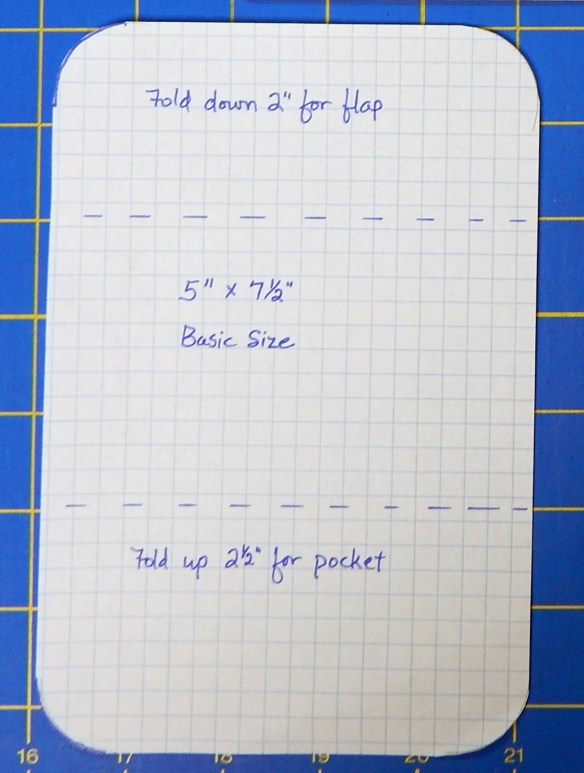 Fold down 2" for flap
5" x 7½"
Basic Size
Fold up 2½" for pocket
16 17 18 19 20 21